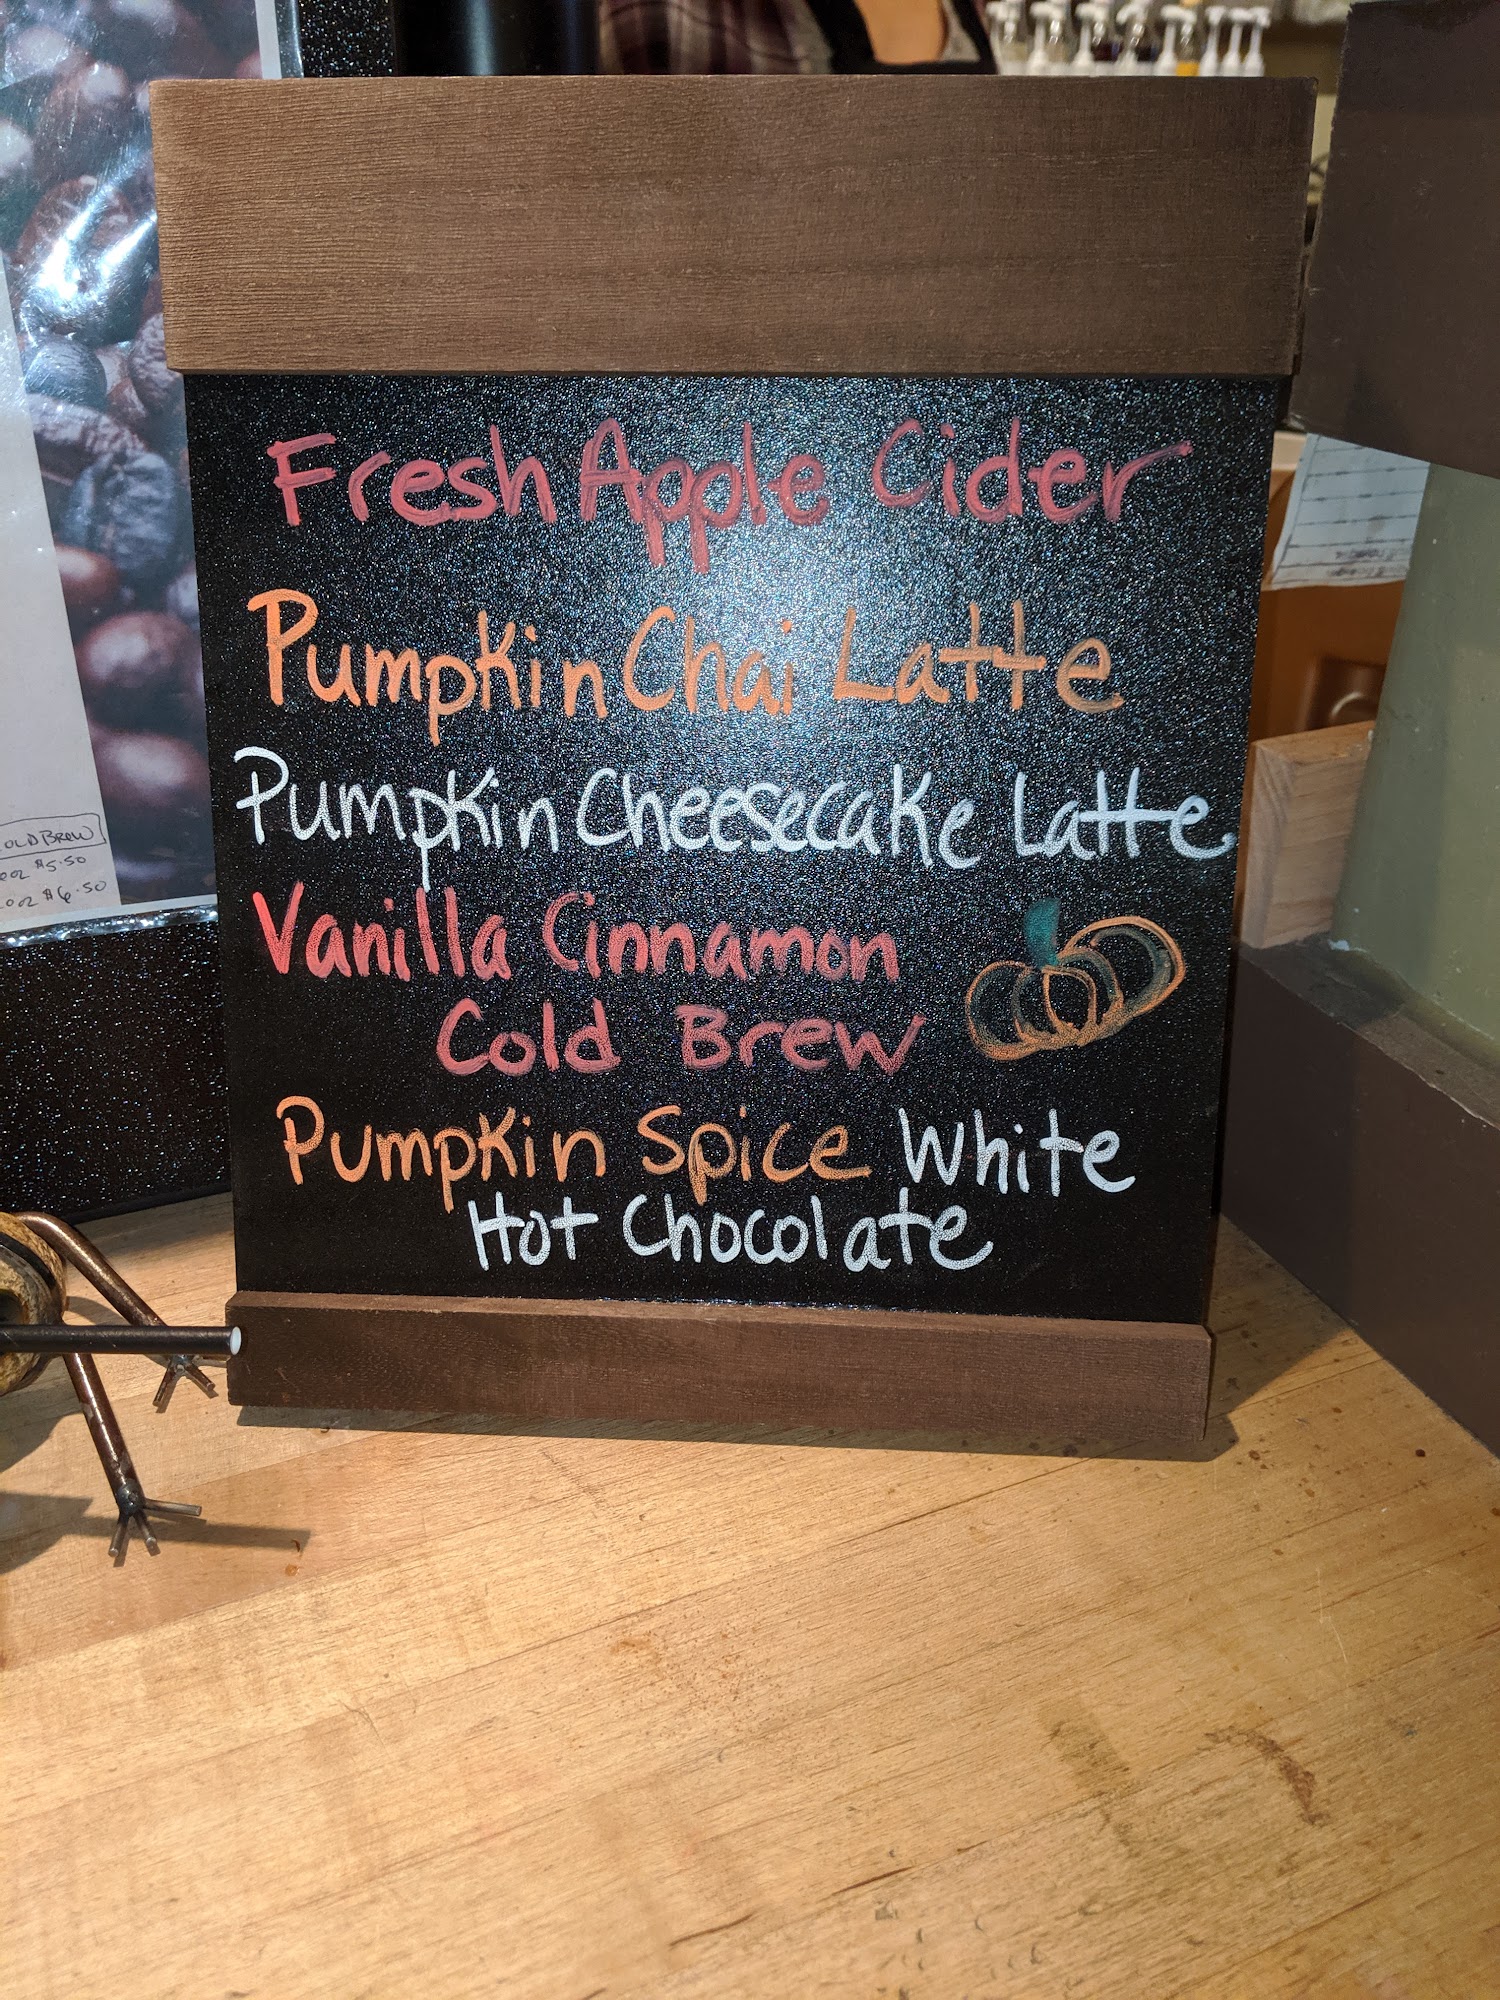 Fresh Apple Cider
Pumpkin Chai Latte
Pumpkin Cheesecake Latte
Vanilla Cinnamon
Cold Brew
Pumpkin Spice White
Hot Chocolate
OLD BREW
oz $5.50
oz $6.50